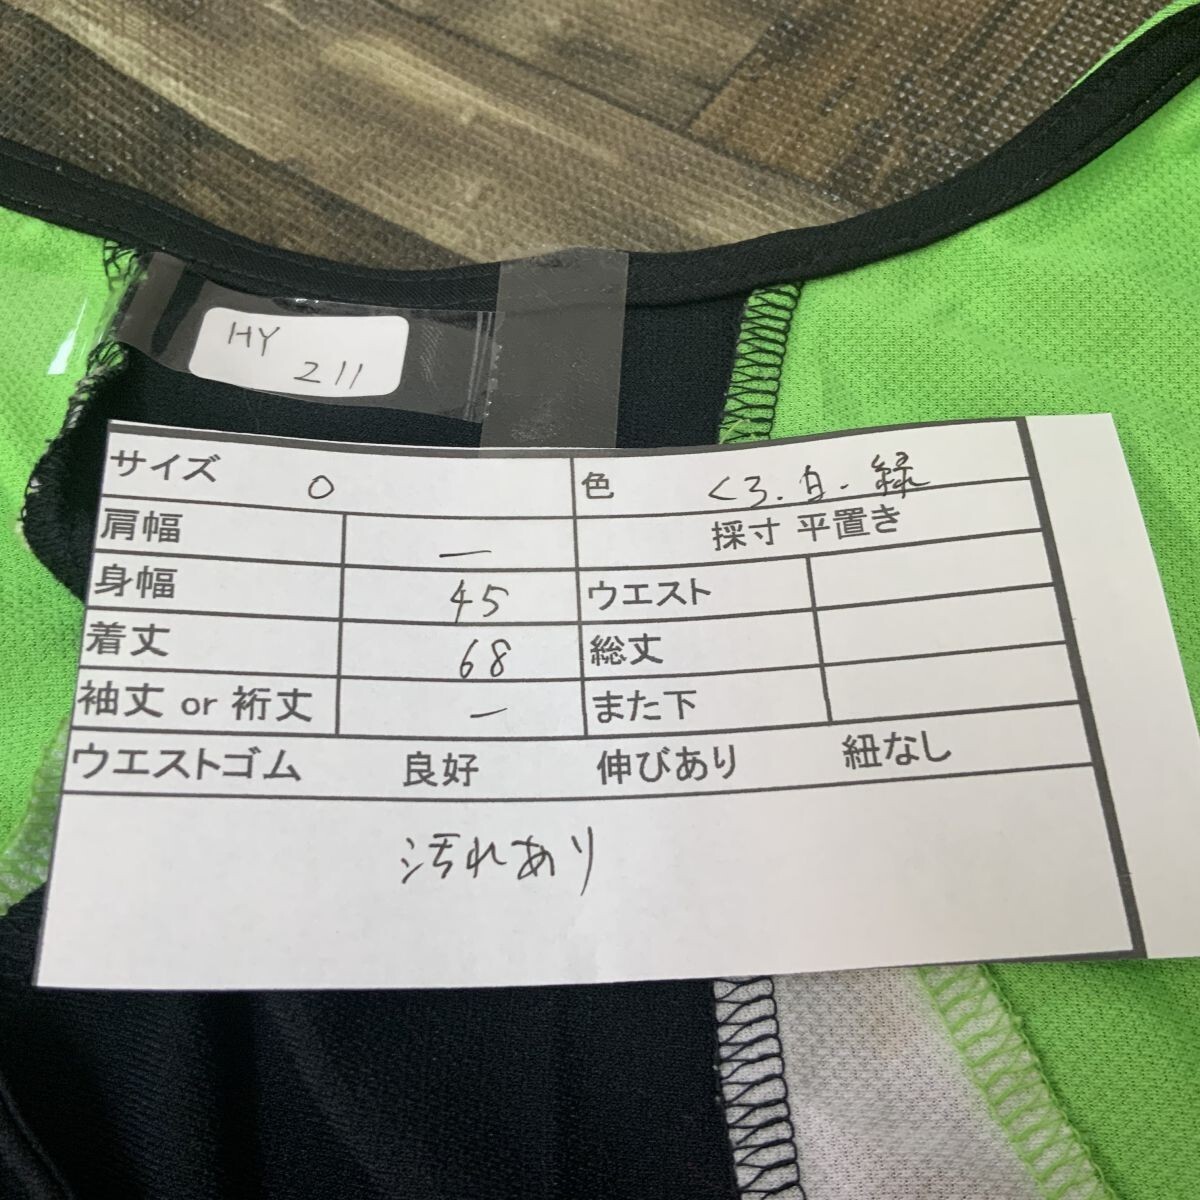 HY
211
サイズ O 色 くろ.白.緑
肩幅 — 採寸 平置き
身幅 45 ウエスト
着丈 68 総丈
袖丈 or 裄丈 — また下
ウエストゴム 良好 伸びあり 紐なし
汚れあり